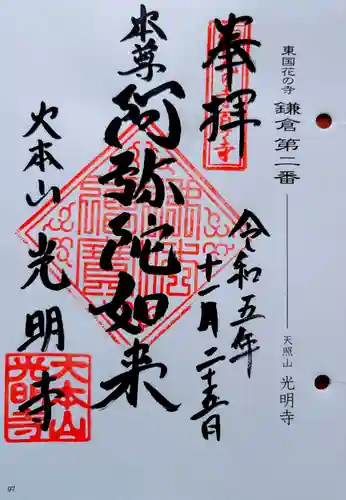 東国花の寺 鎌倉第二番 ── 天照山 光明寺
奉拝
令和五年
十一月二十五日
本尊
阿弥陀如来
大本山 光明寺
大本山
光明寺
97